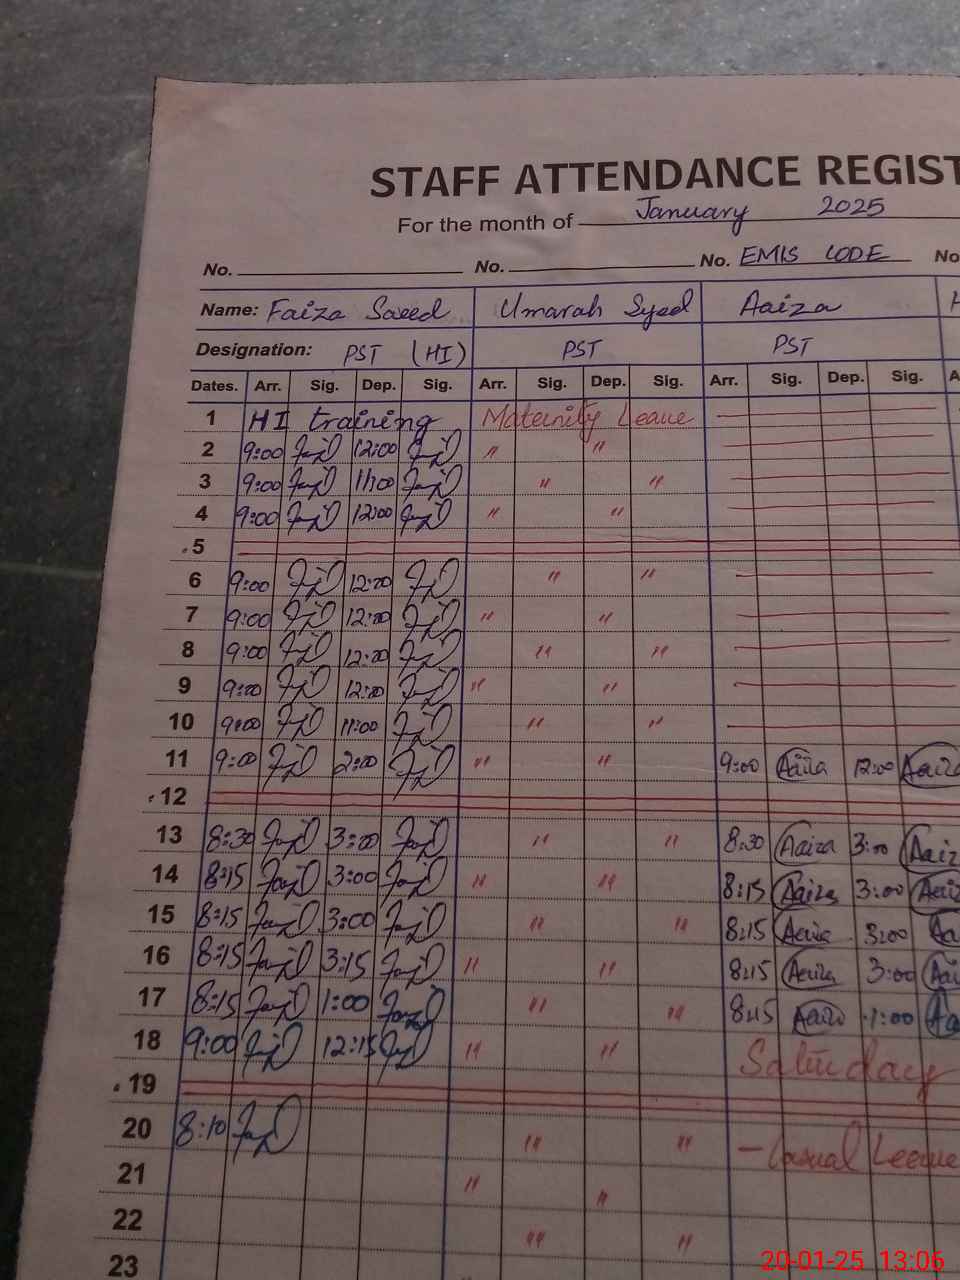 STAFF ATTENDANCE REGIST
For the month of January 2025
No. No. No. EMIS CODE No
Name: Faiza Saeed Umarah Syed Aaiza H
Designation: PST (HI) PST PST
Dates. Arr. Sig. Dep. Sig. Arr. Sig. Dep. Sig. Arr. Sig. Dep. Sig. A
1 HI training Maternity Leave
2 9:00 12:00 " "
3 9:00 11:00 " "
4 9:00 12:00 " "
5
6 9:00 12:00 " "
7 9:00 12:00 " "
8 9:00 12:00 " "
9 9:00 12:00 " "
10 9:00 11:00 " "
11 9:00 2:00 " " 9:00 Aaiza 12:00 Aaiza
12
13 8:30 3:00 " " 8:30 Aaiza 3:00 Aaiz
14 8:15 3:00 " " 8:15 Aaiza 3:00 Aaiz
15 8:15 3:00 " " 8:15 Aaiza 3:00 Aa
16 8:15 3:15 " " 8:15 Aaiza 3:00 Aai
17 8:15 1:00 " " 8:15 Aaiza 1:00 Aa
18 9:00 12:15 " " Saturday
19
20 8:10 " " - Casual Leave
21 " "
22 " "
23
20-01-25 13:06